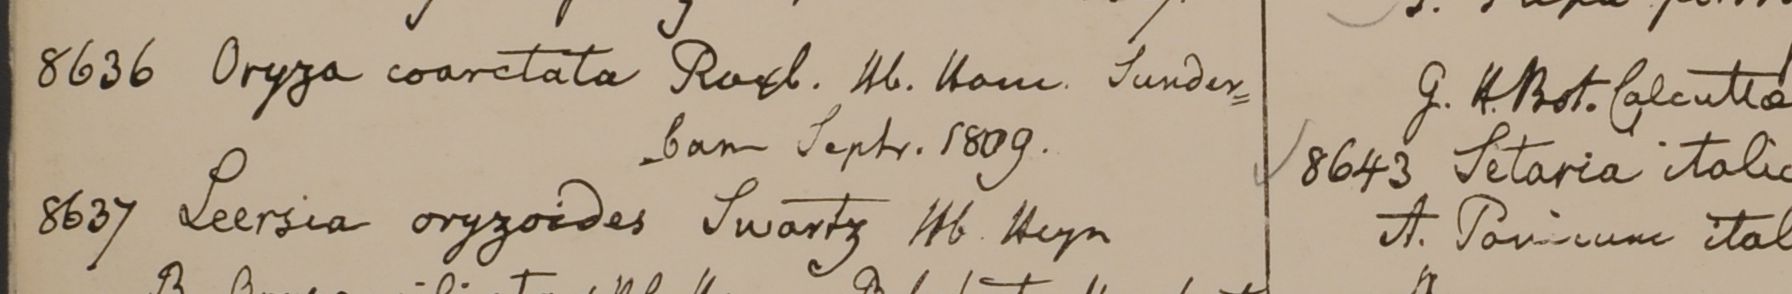 8636 Oryza coarctata Roxb. Hb. Ham. Sunder=
-bam Septr. 1809.
8637 Leersia oryzoides Swartz Hb. Heyn
B.
G. H. Bot. Calcutta
8643 Setaria italic
A. Panicum ital